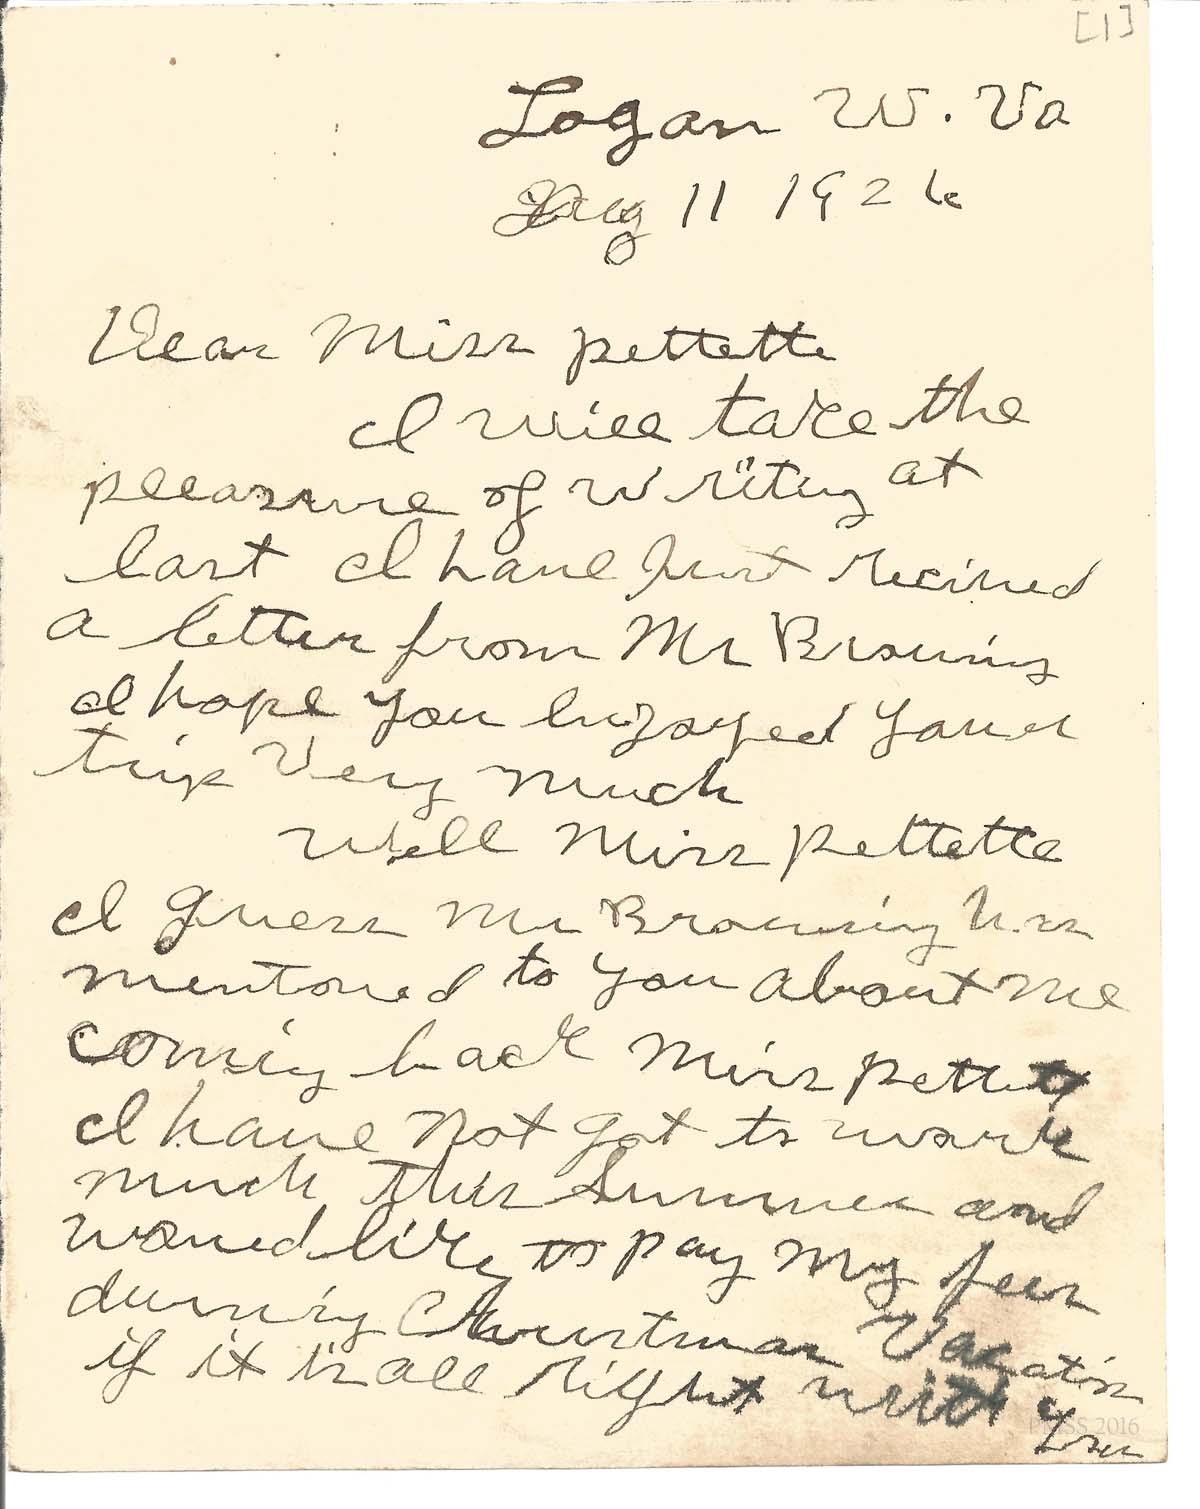 [1]
Logan W. Va
Aug 11 1926
Dear Miss pettette
I will take the
pleasure of writing at
last I have Just recived
a letter from Mr Browning
I hope you Enjoyed your
trip Very much
Well Miss pettette
I guess Mr Browning has
mentoned to you about me
coming back Miss pettett
I have not got to work
much this Summer and
would like to pay my fees
during Christmas Vacation
if it is all right with you
PMSS 2016